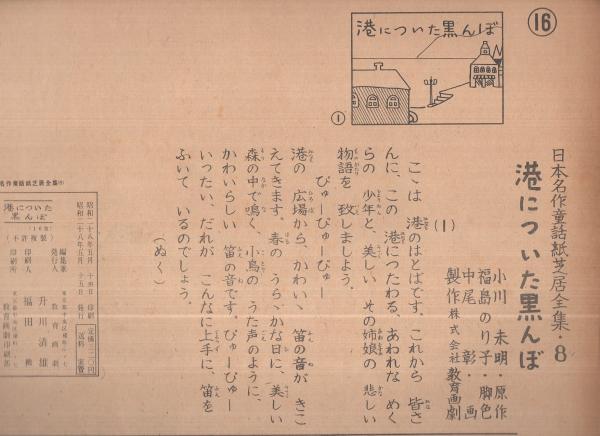 ⑯
港についた黒んぼ
①
日本名作童話紙芝居全集・8
港についた黒んぼ
小川未明・原作
福島のり子・脚色
中尾彰・画
製作 株式会社 教育画劇
(1)
こゝは 港のはとばです。これから 皆さ
んに、この 港につたわる、あわれな めく
らの 少年と、美しい その姉娘の 悲しい
物語を 致しましょう。
ぴゅ ぴーぴゅー
港の 広場から、かわいゝ 笛の音が きこ
えてきます。春の うらゝかな日に、美しい
森の中で鳴く、小鳥の うた声のように、
かわいらしい 笛の音です。ぴゅーぴゅー
いったい、だれが こんなに上手に、笛を
ふいて いるのでしょう。
(ぬく)
名作童話紙芝居全集
港についた
黒んぼ
(不許複製)
昭和二十八年五月 十四日 印刷
昭和二十八年五月 十五日 発行
編集兼
発行人
印刷人
印刷所
教育画劇
升川清雄
福田
教育画劇印刷部
送料 実費